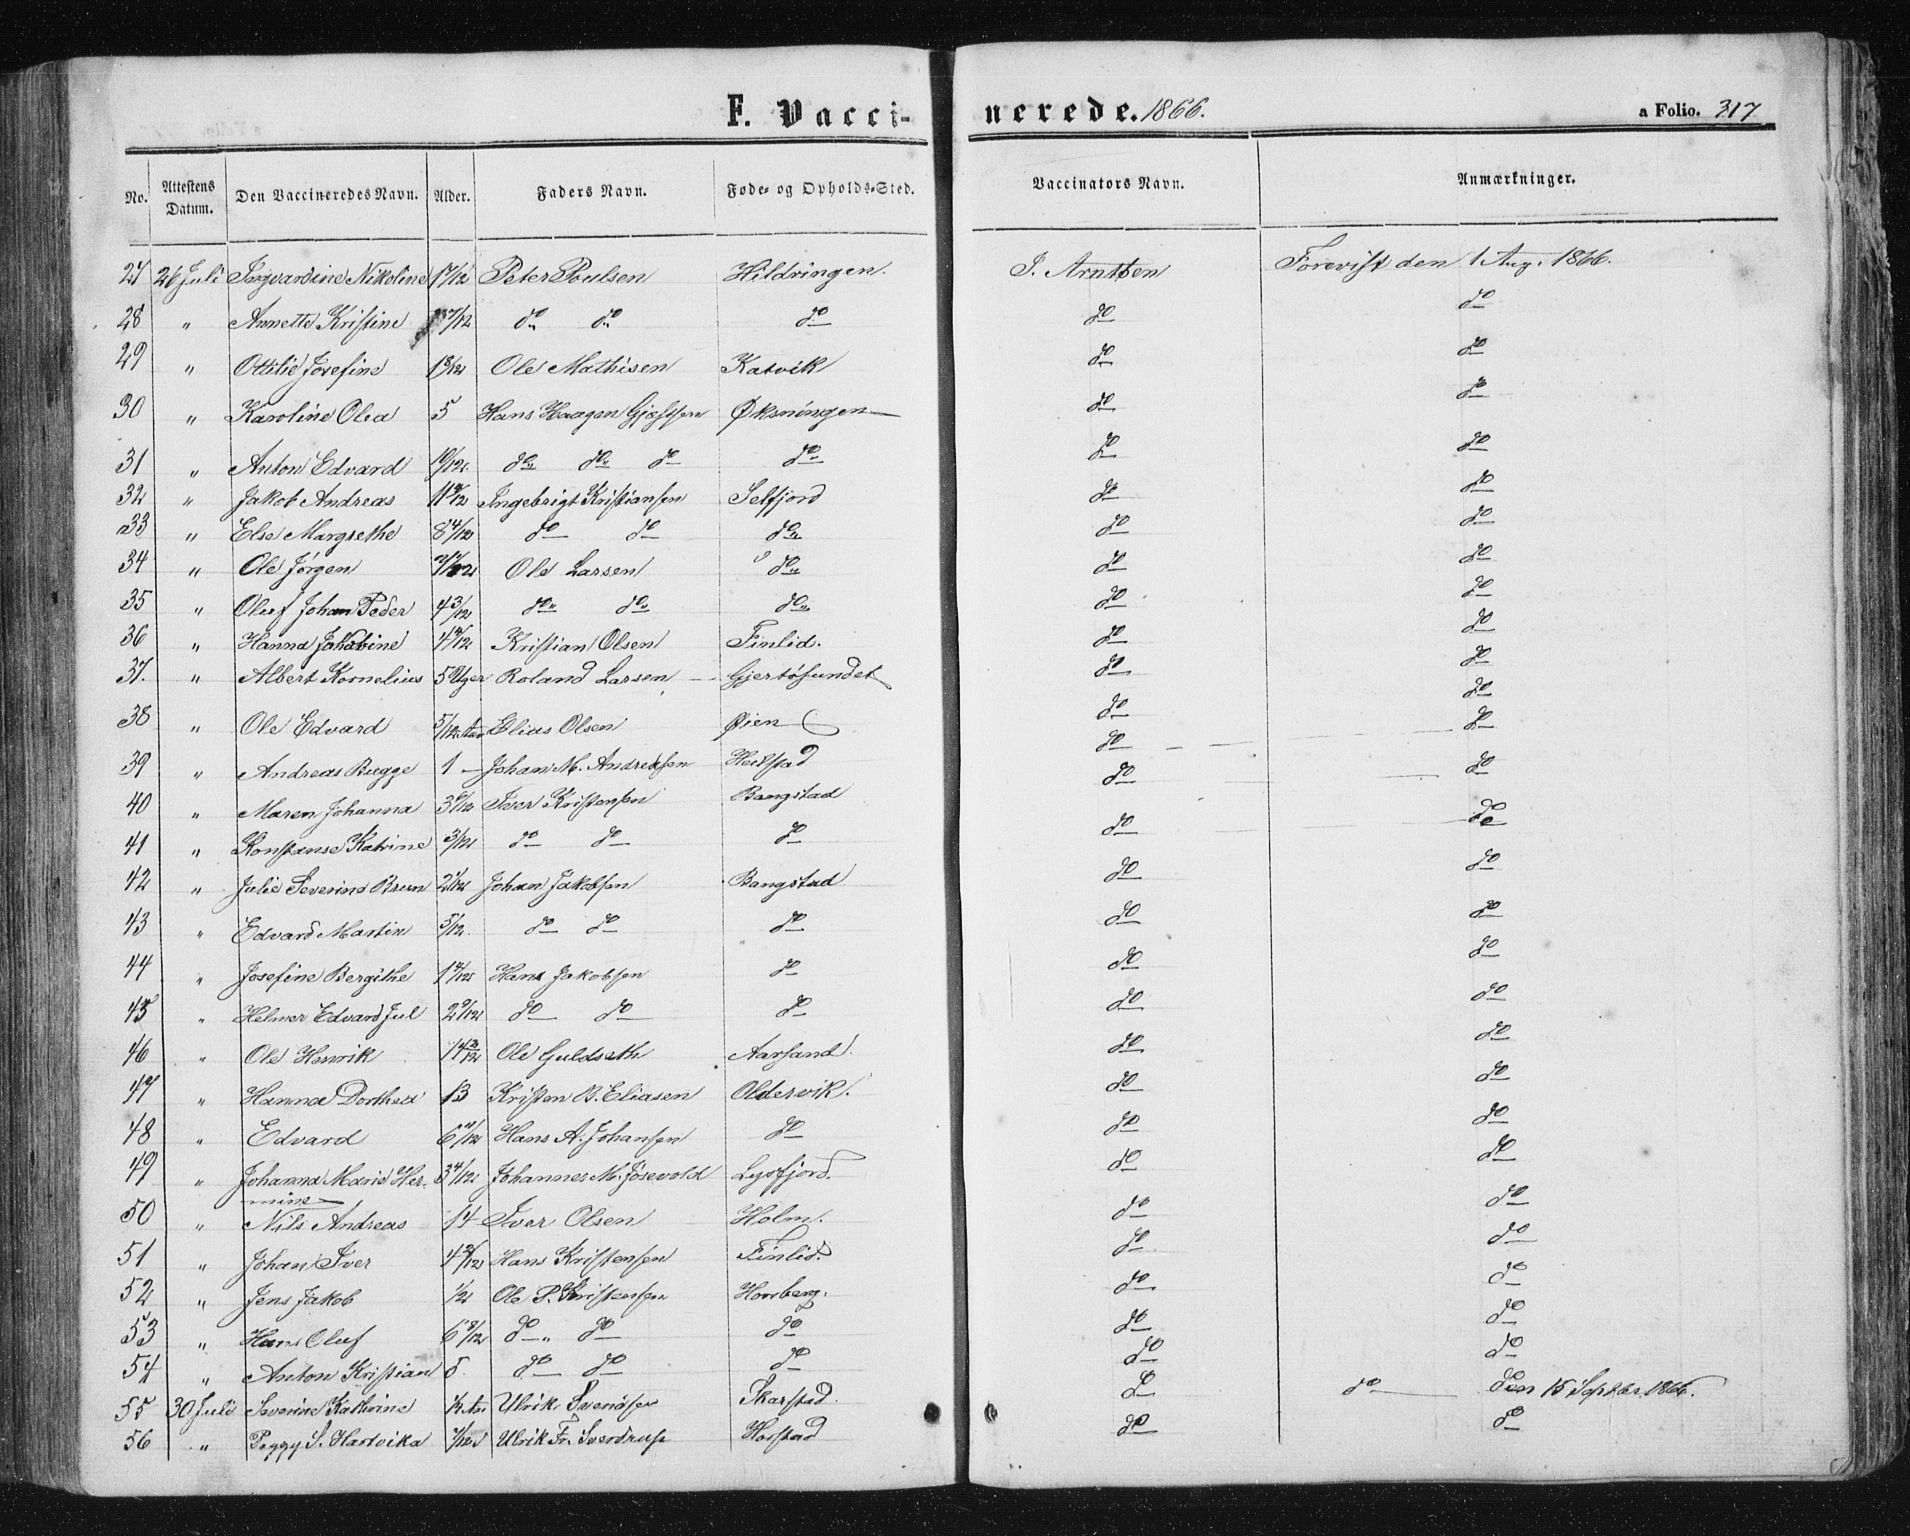 F. Vaccinerede. 1866. a Folio. 317
No. Attestens Datum. Den Vaccineredes Navn. Alder. Faders Navn. Føde- og Opholds-Sted. Vaccinators Navn. Anmærkninger.
27 26 Juli Ingvardine Nikoline 17/12 Peter Poulsen Hildringen. J. Arntsen Forevist den 1 Aug. 1866.
28 " Annette Kristine do do do do do
29 " Ottilie Josefine Ole Mathisen Katvik do do
30 " Karoline Olea 5 Hans Haagen Øksningen do do
31 " Anton Edvard 10/12 do do do do do do
32 " Jakob Andreas Ingebrigt Kristiansen Selfjord do do
33 " Else Margrethe 8 4/12 do do do do do
34 " Ole Jørgen Ole Larsen do do do
35 " Oluf Johan Peder 4 3/12 do do do do do
36 " Hanna Jakobine Kristian Olsen Finlid. do do
37. " Albert Kornelius 5 Uger Roland Larsen Gjertøsundet do do
38 " Ole Edvard 5/12 Aar Elias Olsen Øien do do
39 " Andreas Bugge 1 Johan M. Andreasen Heilstad do do
40 " Maren Johanna 3 6/12 Iver Kristensen Bangstad do do
41 " Konstanse Katrine 3/12 do do do do do
42 " Julie Severine Brun Johan Jakobsen Bangstad do do
43 " Edvard Martin 5/12 do do do do do
44 " Josefine Bergithe Hans Jakobsen do do do
45 " Helmer Edvard Jul 2 9/12 do do do do do
46 " Ole Henrik Ole Guldseth Aarsand. do do
47 " Hanna Dorthea 13 Kristen B. Eliasen Oldervik. do do
48 " Edvard Hans A. Johansen do do do
49 " Johanna Marie Her- 3 4/12 Johannes M. Jøsevold Lysfjord. do do
mine
50 " Nils Andreas 14 Iver Olsen Holm. do do
51 " Johan Iver Hans Kristensen Finlid. do do
52 " Jens Jakob 1/2 Ole P. Kristensen Horsberg. do do
53 " Hans Oluf 6 8/12 do " do do do do
54 " Anton Kristian do do do do do
55 30 Juli Severine Kathrine Ulrik Svendsen Skarstad. do do den 15 Septbr. 1866.
56 " Peggy S. Hartvika Ulrik Fr. Sverdrup Horstad do do